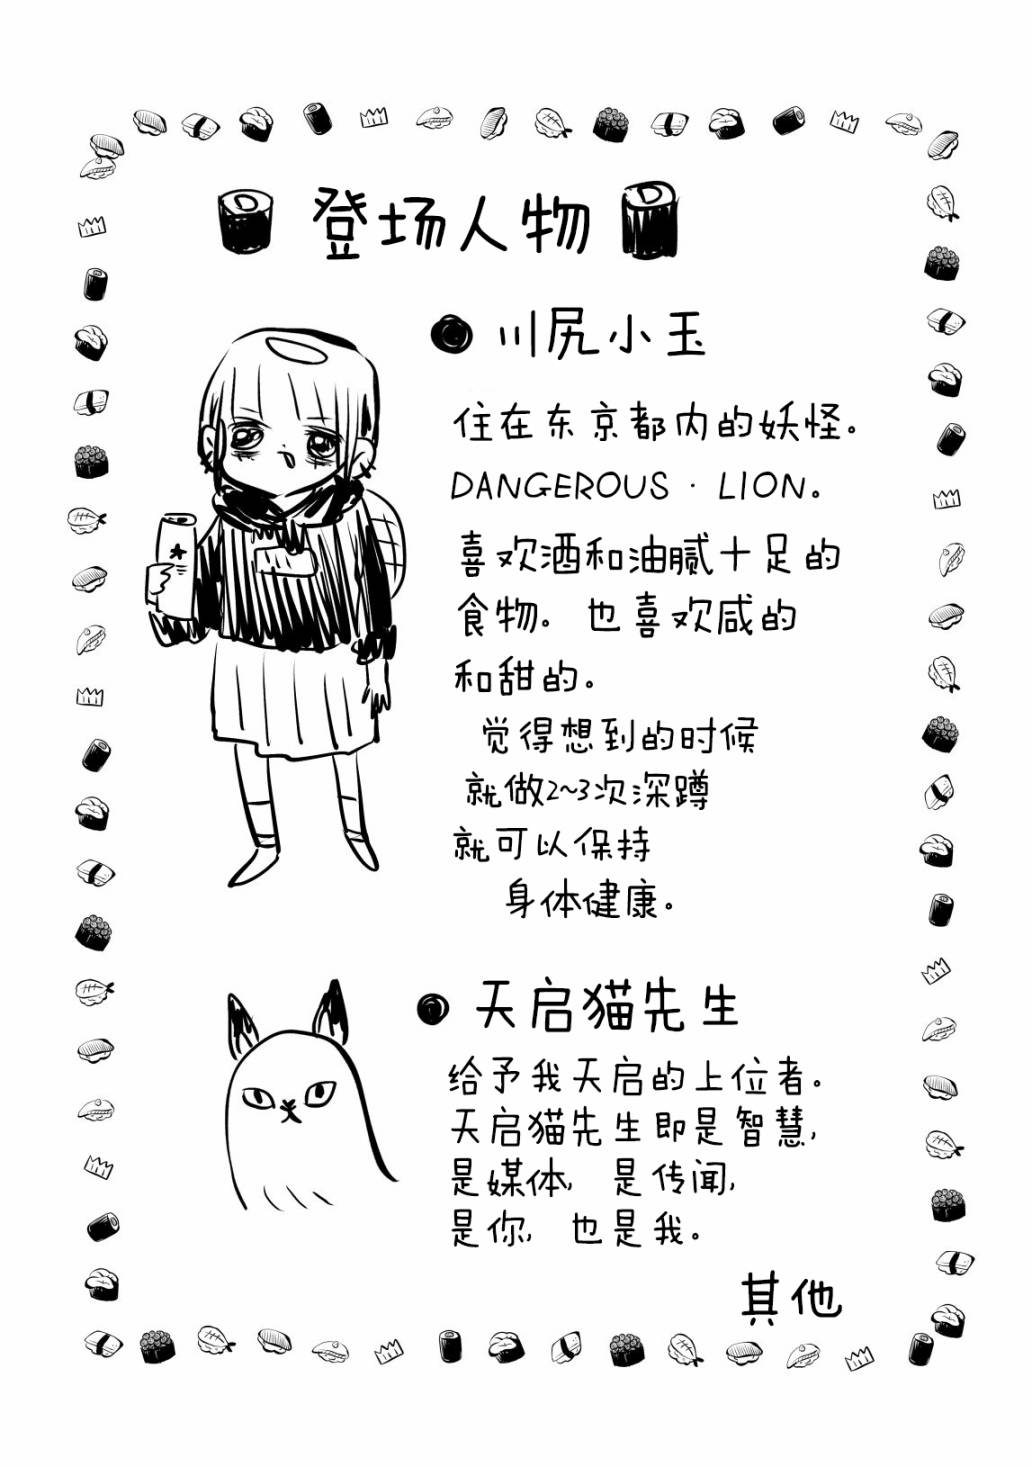 登场人物
川尻小玉
住在东京都内的妖怪。
DANGEROUS · LION。
喜欢酒和油腻十足的
食物。也喜欢咸的
和甜的。
觉得想到的时候
就做2~3次深蹲
就可以保持
身体健康。
天启猫先生
给予我天启的上位者。
天启猫先生即是智慧,
是媒体, 是传闻,
是你, 也是我。
其他